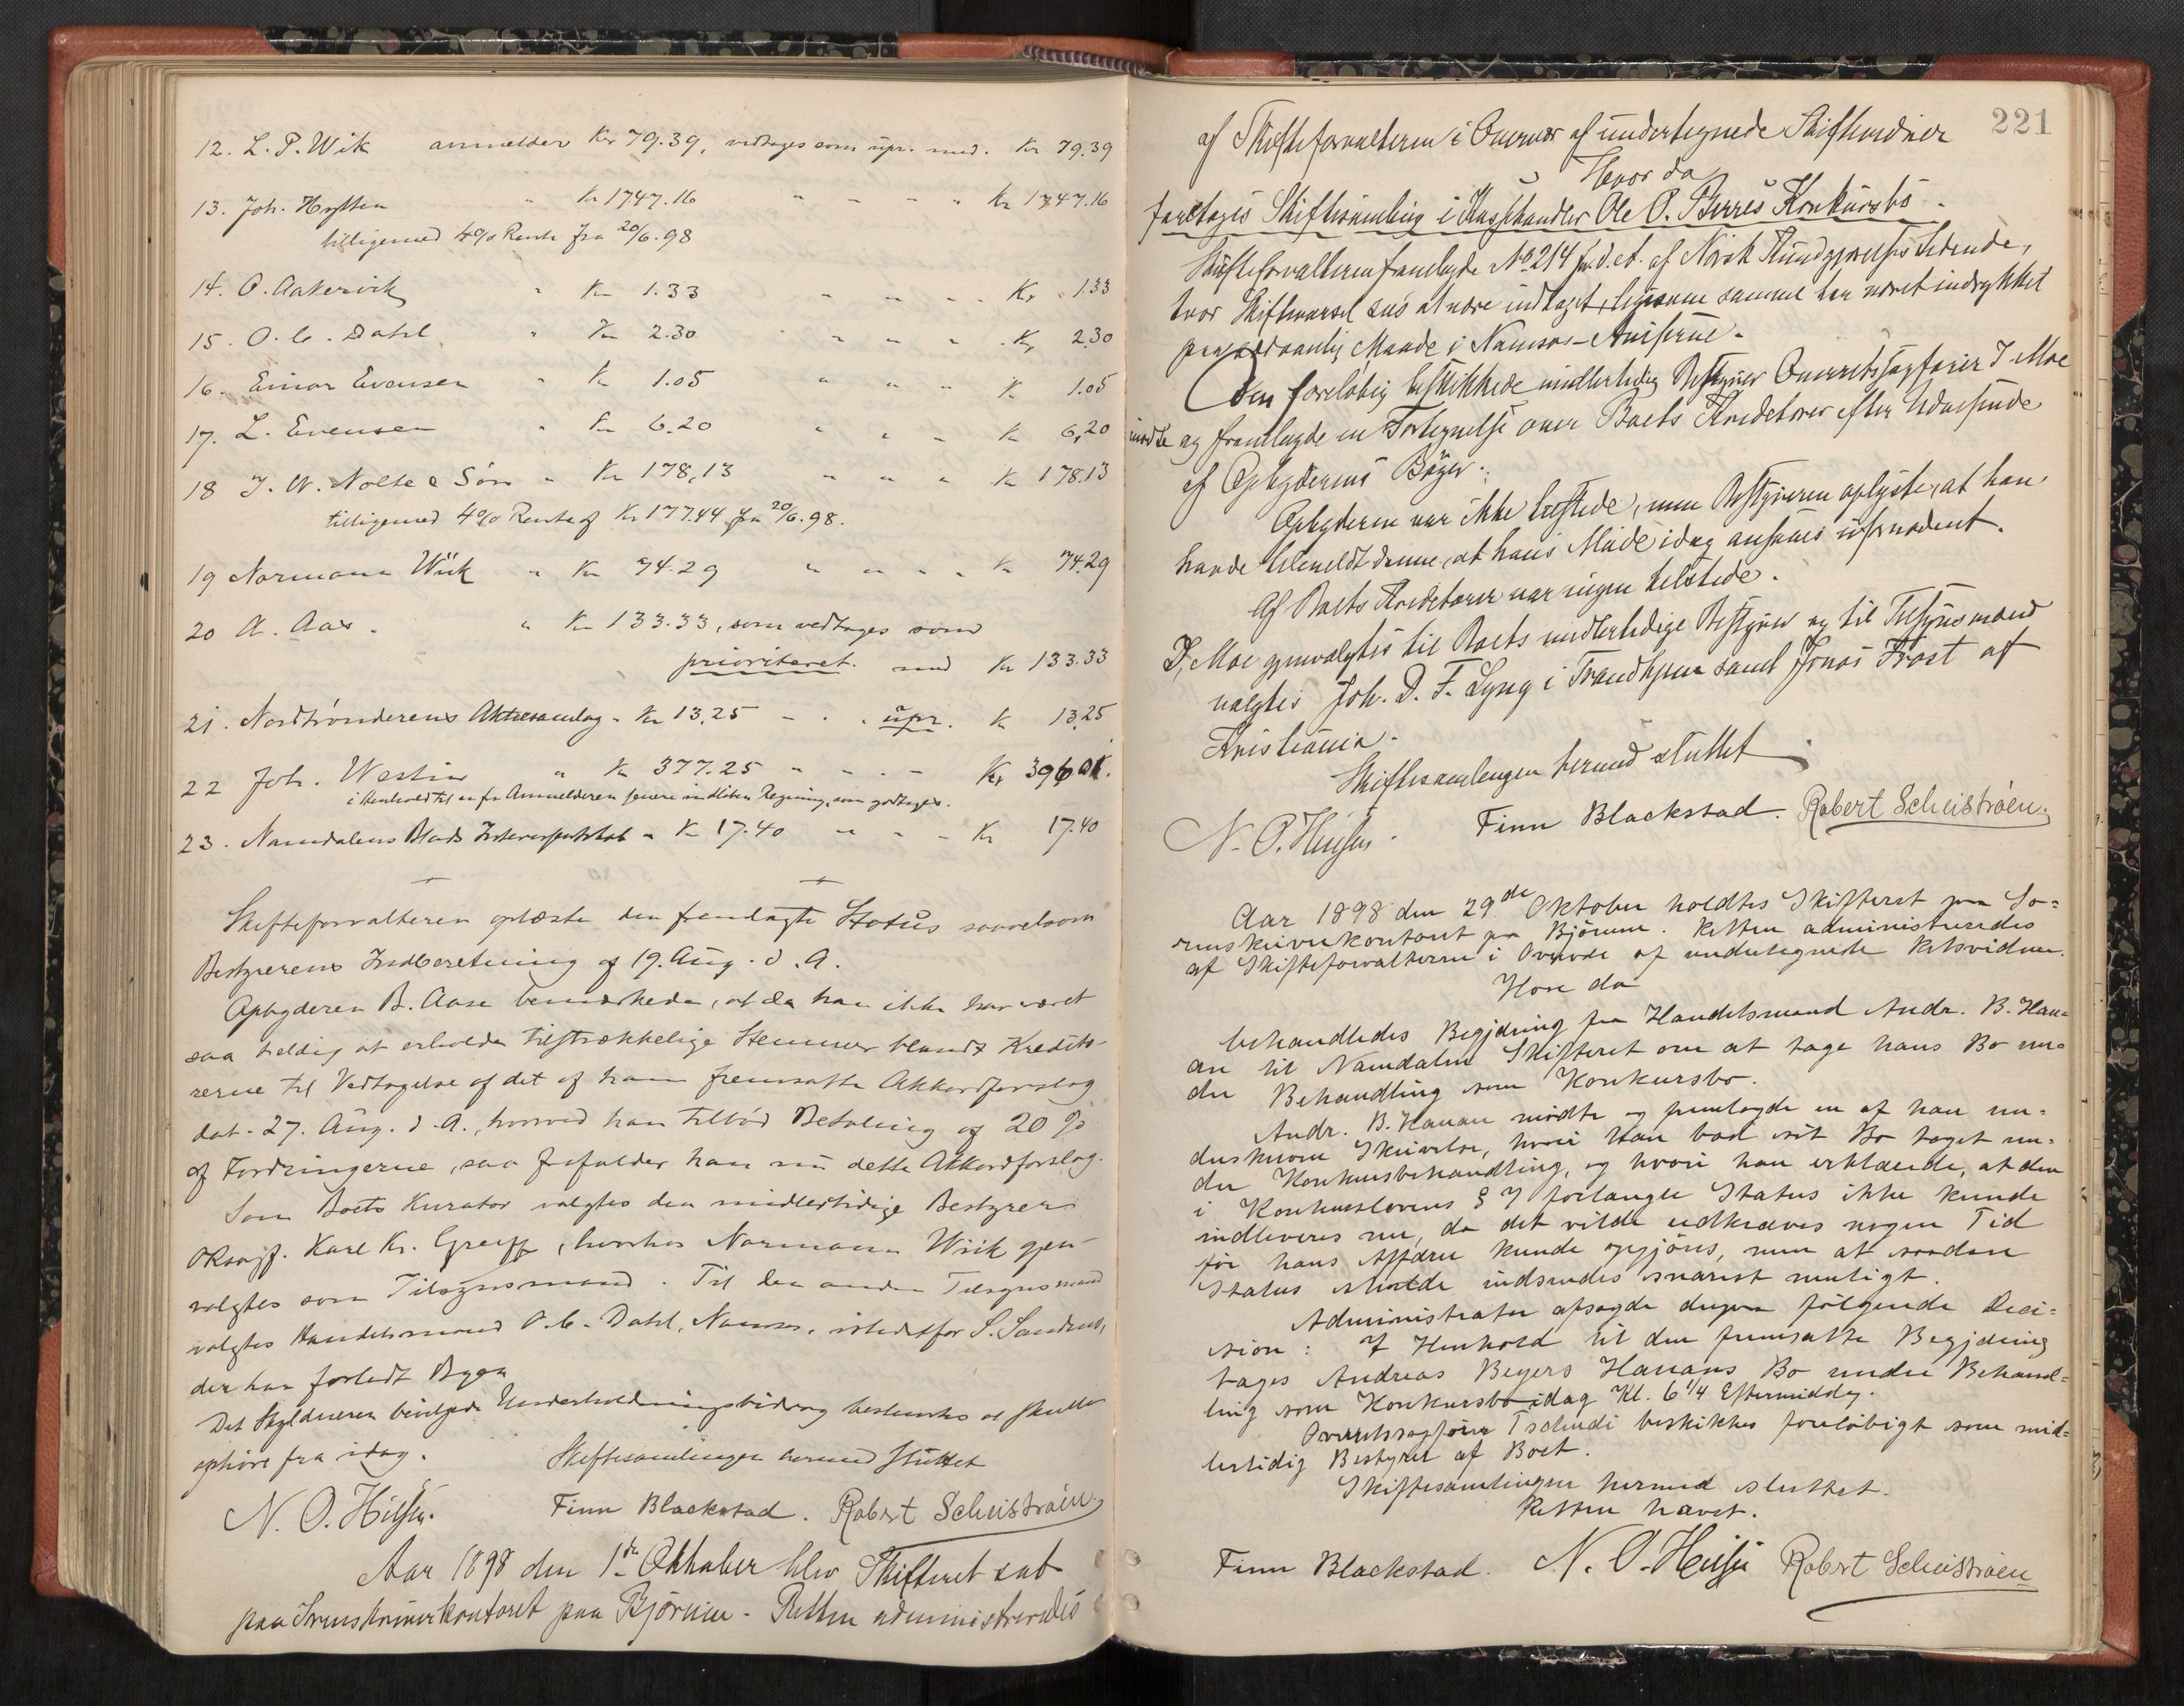 12. L. P. Wik anmelder Kr 79.39, vedtages som upr. med. Kr 79.39
13. Joh. Hytten " Kr 1747.16 " " " " Kr 1747.16
tilligemed 4% Rente fra 20/6.98
14. O. Aakervik " Kr 1.33 " " " " Kr 1.33
15. O. C. Dahl " Kr 2.30 " " " " Kr 2.30
16. Einar Evensen " Kr 1.05 " " " Kr 1.05
17. L. Evensen " Kr 6.20 " " " Kr 6,20
18 J. W. Nolte & Søn " Kr 178,13 " " " Kr 178.13
tilligemed 4% Rente af Kr 177.44 fra 20/6.98.
19 Normann Wiik " Kr 74.29 " " " " Kr 74.29
20 A. Aas. " Kr 133.33, som vedtages som
prioriteret med Kr 133.33
21. Nordtrønderens Aktiesamlag " Kr 13,25 " " " upr. Kr 13,25
22 Joh. Westin " Kr 377.25 " " " Kr 396
i Henhold til en fra Anmelderen senere indkommen Regning, som godtages.
23. Namdalens Blads Interessentskab " Kr 17.40 " " " Kr 17.40
Skifteforvalteren oplæste den fremlagte Status saavelsom
Bestyrerens Indberetning af 19. Aug. d. A.
Opbyderen B. Aase bemærkede, at da han ikke har været
saa heldig at erholde tilstrækkelige Stemmer blandt Kredito-
rerne til Vedtagelse af det af ham fremsatte Akkordforslag
dat. 27. Aug. d. A., hvorved han tilbød Betaling af 20 %
af Fordringerne, saa frafalder han nu dette Akkordforslag.
Som Boets Kurator valgtes den midlertidige Bestyrer
Oksagf. Karl Kr. Greiff, hvorhos Normann Wiik gjen-
valgtes som Tilsynsmand. Til den anden Tilsynsmand
valgtes Handelsmand O. C. Dahl, Namsos, istedetfor S.
der har forladt Byen
Det Skyldneren bevilgede Underholdningsbidrag bestemtes at skulle
ophøre fra idag.
Skiftesamlingen hermed sluttet
N. O. Finn Blackstad. Robert Scheistrøen
Aar 1898 den 1ste Oktober blev Skifteret sat
paa Sorenskriverkontoret paa Bjørum. Retten administreredes
221
af Skifteforvalteren i Overvær af undertegnede Skiftevidner
Hvor da
foretoges Skiftesamling i Ole O. Konkursbo.
Skifteforvalteren fremlagde No 214 for d. A. af Norsk Kundgjørelses Tidende,
hvor Skiftevarsel saas at være indtaget, ligesom samme har været indrykket
paa sædvanlig Maade i Namsos-Aviserne.
Den foreløbig beskikkede midlertidig Bestyrer Overretssagfører I. Moe
mødte og fremlagde en Fortegnelse over Boets Kreditorer efter Udvisende
af Opbyderens Bøger.
Opbyderen var ikke tilstede, men Bestyreren oplyste, at han
havde tilmeldt denne, at hans Møde idag ansaaes ufornødent.
Af Boets Kreditorer var ingen tilstede.
I. Moe gjenvalgtes til Boets midlertidige Bestyrer og til Tilsynsmænd
valgtes Joh. D. F. Lyng i Trondhjem samt Jonas Frost af
Kristiania.
Skiftesamlingen hermed sluttet
N. O. Finn Blackstad. Robert Scheistrøen.
Aar 1898 den 29de Oktober holdtes Skifteret paa So-
renskriverkontoret paa Bjørum. Retten administreredes
af Skifteforvalteren i Overvær af undertegnede Retsvidner.
Hvor da
behandledes Begjæring fra Handelsmand Andr. B. Han-
an til Namdalen Skifteret om at tage hans Bo un-
der Behandling som Konkursbo.
Andr. B. Hanan mødte og fremlagde en af ham un-
derskreven Skrivelse, hvori han bad sit Bo taget un-
der Konkursbehandling, og hvori han erklærede, at den
i Konkurslovens § 7 forlangte Status ikke kunde
indleveres nu, da det vilde udkræves nogen Tid
før hans Affærer kunde opgjøres, men at saadan
Status skulde indsendes snarest muligt.
Administrator afsagde derpaa følgende Deci-
sion: I Henhold til den fremsatte Begjæring
tages Andreas Beyers Hanans Bo under Behand-
ling som Konkursbo idag Kl. 6 1/4 Eftermiddag.
Overretssagfører Tschudi beskikkes foreløbigt som mid-
lertidig Bestyrer af Boet.
Skiftesamlingen hermed sluttet.
Retten hævet.
Finn Blackstad. N. O. Robert Scheistrøen